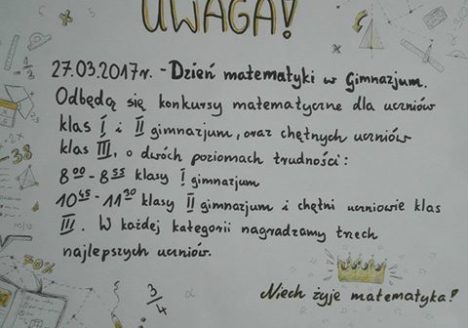 UWAGA!
27.03.2017r. - Dzień matematyki w Gimnazjum.
Odbędą się konkursy matematyczne dla uczniów
klas I i II gimnazjum, oraz chętnych uczniów
klas III, o dwóch poziomach trudności:
8⁰⁰ - 8⁵⁵ klasy I gimnazjum
10⁴⁵ - 11³⁰ klasy II gimnazjum i chętni uczniowie klas
III. W każdej kategorii nagradzamy trzech
najlepszych uczniów.
3/4
Niech żyje matematyka!